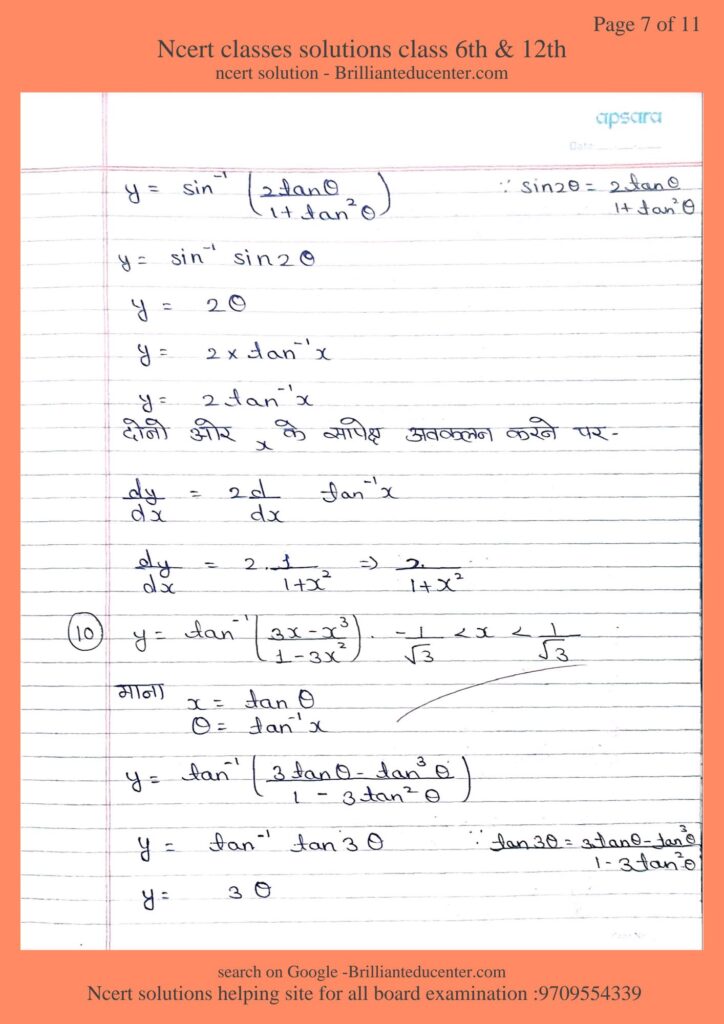 Page 7 of 11
Ncert classes solutions class 6th & 12th
ncert solution - Brillianteducenter.com
apsara
Date
y = sin⁻¹ (2tanθ / 1+tan²θ) ∵ sin2θ = 2tanθ / 1+tan²θ
y = sin⁻¹ sin2θ
y = 2θ
y = 2 x tan⁻¹x
y = 2tan⁻¹x
दोनो ओर x के सापेक्ष अवकलन करने पर -
dy/dx = 2d/dx tan⁻¹x
dy/dx = 2.1/1+x² => 2./1+x²
10 y = tan⁻¹ (3x-x³ / 1-3x²). -1/√3 < x < 1/√3
माना x = tan θ
θ = tan⁻¹x
y = tan⁻¹ (3tanθ - tan³θ / 1 - 3tan²θ)
y = tan⁻¹ tan3θ ∵ tan3θ = 3tanθ-tan³θ / 1-3tan²θ
y = 3θ
search on Google -Brillianteducenter.com
Ncert solutions helping site for all board examination :9709554339